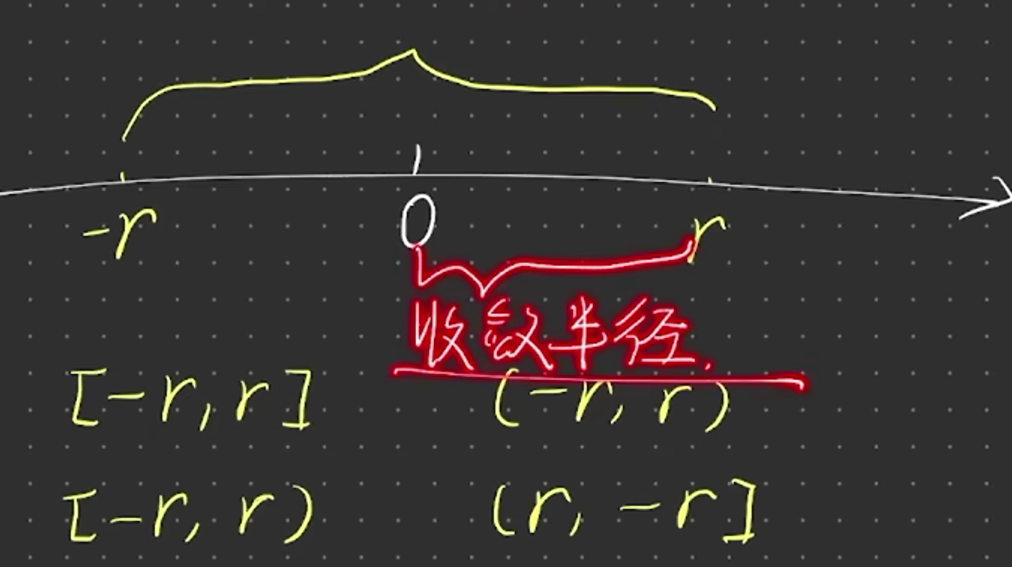 -r 0 r
收敛半径.
[-r, r] (-r, r)
[-r, r) (r, -r]